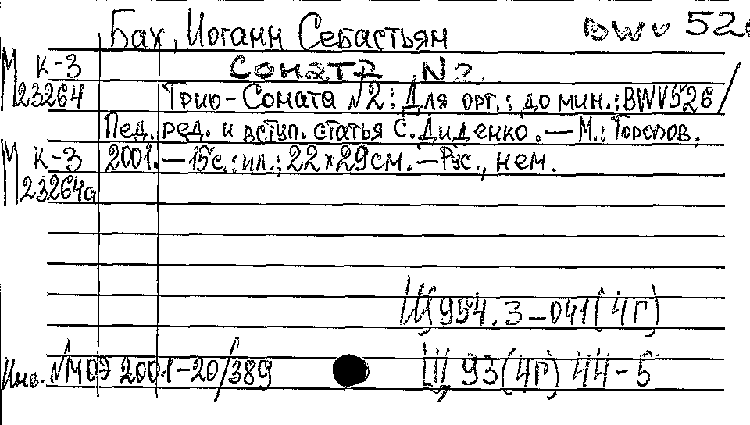 Бах, Иоганн Себастьян BWV 526
М К-3 Соната N2.
23264 Трио-Соната №2: Для орг.; до мин.; BWV526 /
Пед. ред. и вступ. статья С. Диденко. — М.: Торопов.
М К-3 2001. — 15с.: ил.; 22×29см. — Рус., нем.
23264а
Щ954.3-041(4Г)
Инв. №МОЭ 2001-20/389 Щ93(4Г)44-5